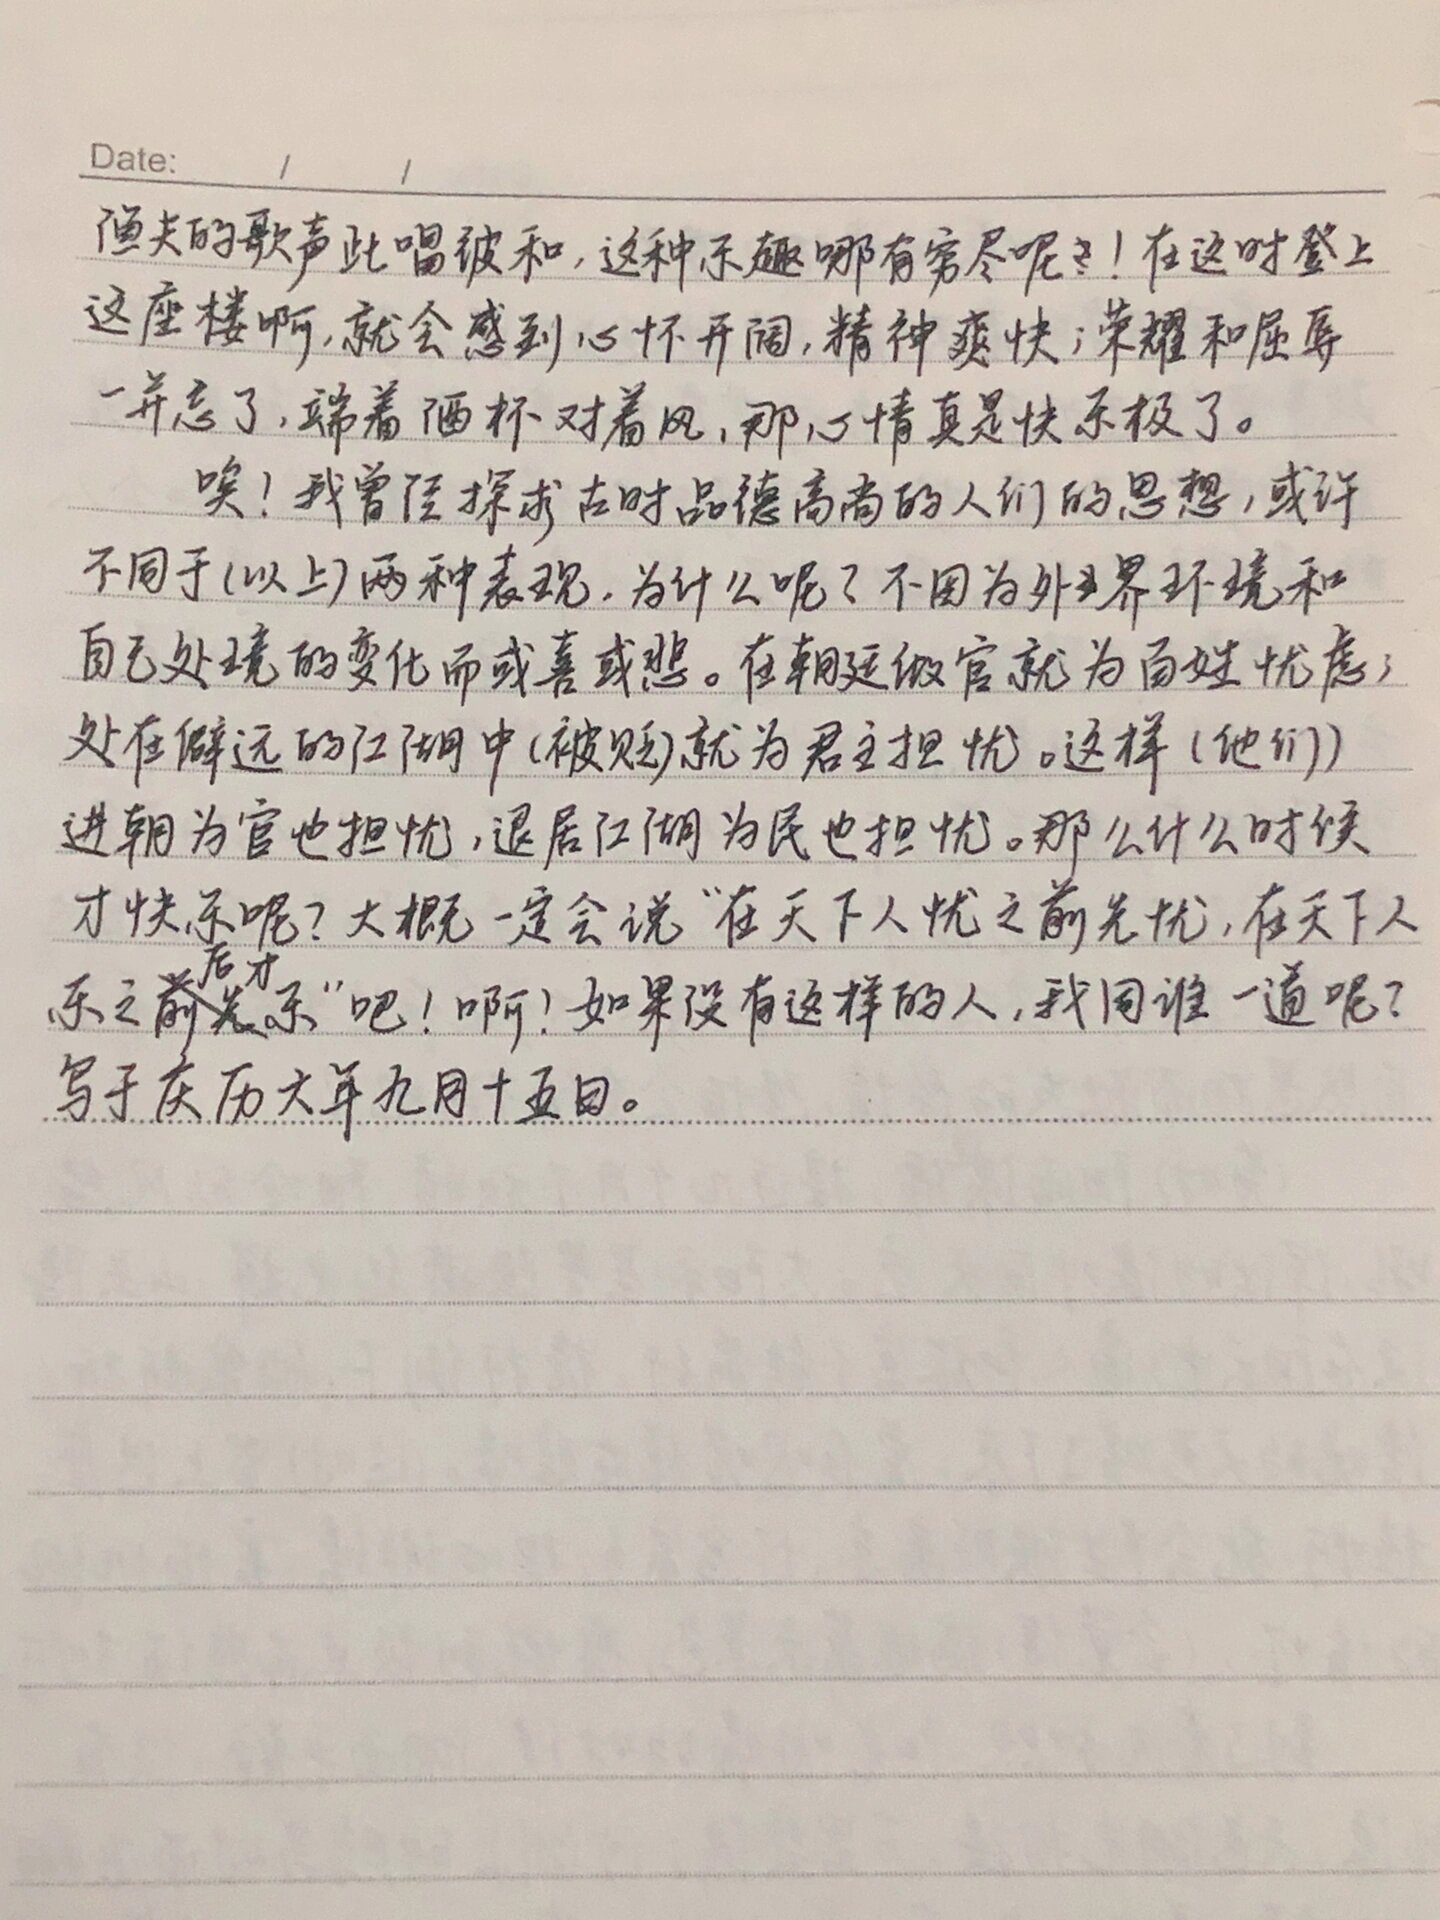 Date: / /
渔夫的歌声此唱彼和，这种乐趣哪有穷尽呢！在这时登上
这座楼啊，就会感到心怀开阔，精神爽快；荣耀和屈辱
一并忘了，端着酒杯对着风，那心情真是快乐极了。
唉！我曾经探求古时品德高尚的人们的思想，或许
不同于（以上）两种表现，为什么呢？不因为外界环境和
自己处境的变化而或喜或悲。在朝廷做官就为百姓忧虑；
处在僻远的江湖中（被贬）就为君主担忧。这样（他们）
进朝为官也担忧，退居江湖为民也担忧。那么什么时候
才快乐呢？大概一定会说“在天下人忧之前先忧，在天下人
乐之后才乐”吧！啊！如果没有这样的人，我同谁一道呢？
写于庆历六年九月十五日。